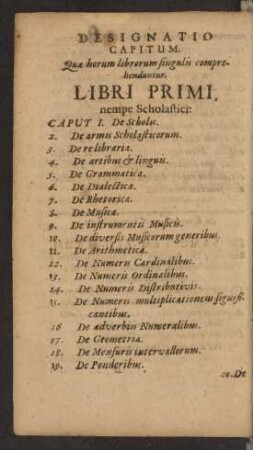 DESIGNATIO
CAPITUM.
Quæ horum librorum singulis compre-
henduntur.
LIBRI PRIMI,
nempe Scholastici:
CAPUT I. De Scholis.
2. De armis Scholasticorum.
3. De re libraria.
4. De artibus & linguis.
5. De Grammatica.
6. De Dialectica.
7. De Rhetorica.
8. De Musica.
9. De instrumentis Musicis.
10. De diversis Musicorum generibus.
11. De Arithmetica.
12. De Numeris Cardinalibus.
13. De Numeris Ordinalibus.
14. De Numeris Distributivis.
15. De Numeris multiplicationem signifi-
cantibus.
16 De adverbiis Numeralibus.
17. De Geometria.
18. De Mensuris intervallorum.
19. De Ponderibus.
20. De